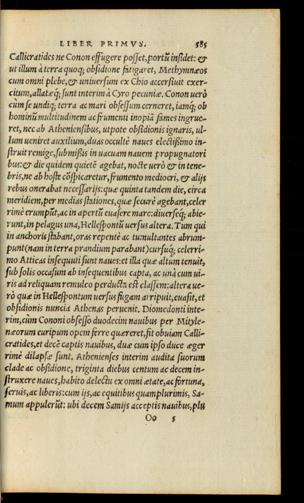 LIBER PRIMVS. 585
Callicratides ne Conon effugere posset, portũ insidet: &
ut illum à terra quoq; obsidione fatigaret, Methymnæos
cum omni plebe, & uniuersum ex Chio accersiuit exer-
citum, allatæq; sunt interim à Cyro pecuniæ. Conon uerò
cùm se undiq; terra ac mari obsessum cerneret, iamq; ob
hominũ multitudinem ac frumenti inopiã fames ingrue-
ret, nec ab Atheniensibus, utpote obsidionis ignaris, ul-
lum ueniret auxilium, duas occultè naues electissimo in-
struit remige, submissis in uacuam nauem propugnatori
bus: & die quidem quietè agebat, nocte uerò & in tene-
bris, ne ab hoste cõspiceretur, frumento mediocri, & alijs
rebus onerabat necessarijs: quæ quinta tandem die, circa
meridiem, per medias stationes, quæ securè agebant, celer
rimè erumpũt, ac in apertũ euasere mare: diuerseq; abie-
runt, in pelagus una, Hellespontũ uersus altera. Tum qui
in anchoris stabant, oras repentè ac tumultantes abrum-
punt (nam in terra prandium parabant) cursuq; celerri-
mo Atticas insequuti sunt naues: et illa quæ altum tenuit,
sub solis occasum ab insequentibus capta, ac unà cum ui-
ris ad reliquam remulco perducta est classem: altera ue-
rò quæ in Hellespontum uersus fugam arripuit, euasit, et
obsidionis nuncia Athenas peruenit. Diomedonti inte-
rim, cùm Cononi obsesso duodecim nauibus per Mityle-
næorum euripum opem ferre quæreret, fit obuiam Calli-
cratides, et decẽ captis nauibus, duæ cum ipso duce æger
rimè dilapsæ sunt. Athenienses interim audita suorum
clade ac obsidione, triginta diebus centum ac decem in-
struxere naues, habito delectu ex omni ætate, ac fortuna,
seruis, ac liberis: cum ijs, ac equitibus quamplurimis, Sa-
mum appulerũt: ubi decem Samijs acceptis nauibus, plu
Oo 5